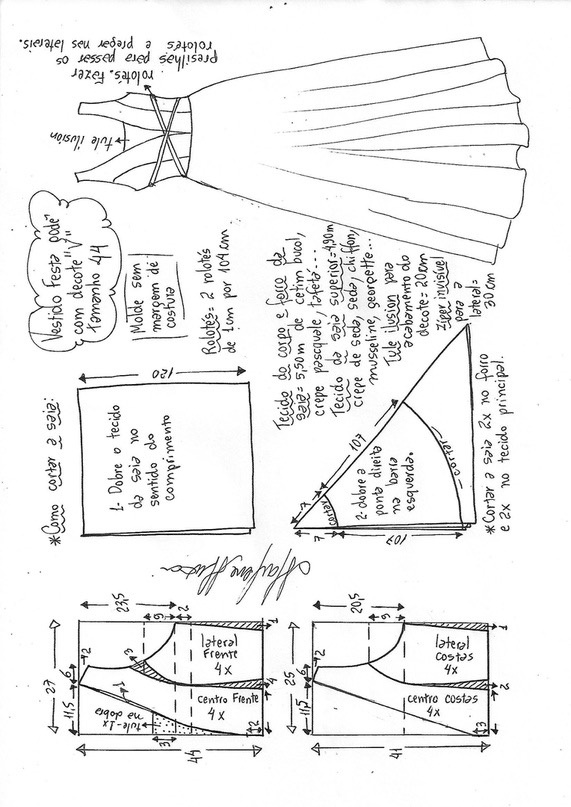 rolotés. Fazer
presilhas para passar os
rolotés e pregar nas laterais.
tule ilusion
Vestido Festa godê
com decote "V"
Tamanho 44
Molde sem
margem de
costura
Rolotés = 2 rolotés
de 1cm por 104cm
Tecido do corpo e forro da
saia = 5,50m de cetim bucol,
crepe pasquale, tafetá...
Tecido da saia superior = 4,90m
crepe de seda, seda, chiffon,
musseline, georgette...
Tule ilusion para
acabamento do
decote = 20cm
Ziper invisível
para a
lateral =
30cm
*Como cortar a saia:
120
1- Dobre o tecido
da saia no
sentido do
comprimento
7
107
cortar
2- dobre a
ponta direita
na barra
esquerda.
cortar
7
107
*Cortar a saia 2x no forro
e 2x no tecido principal.
23,5
9
2
27
6
2
11,5
3
lateral
Frente
4x
1
centro Frente
4x
4
1
tule-1x
na dobra
3
2
44
20,5
9
25
6
2
11,5
lateral
costas
4x
1
centro costas
4x
2
3
41